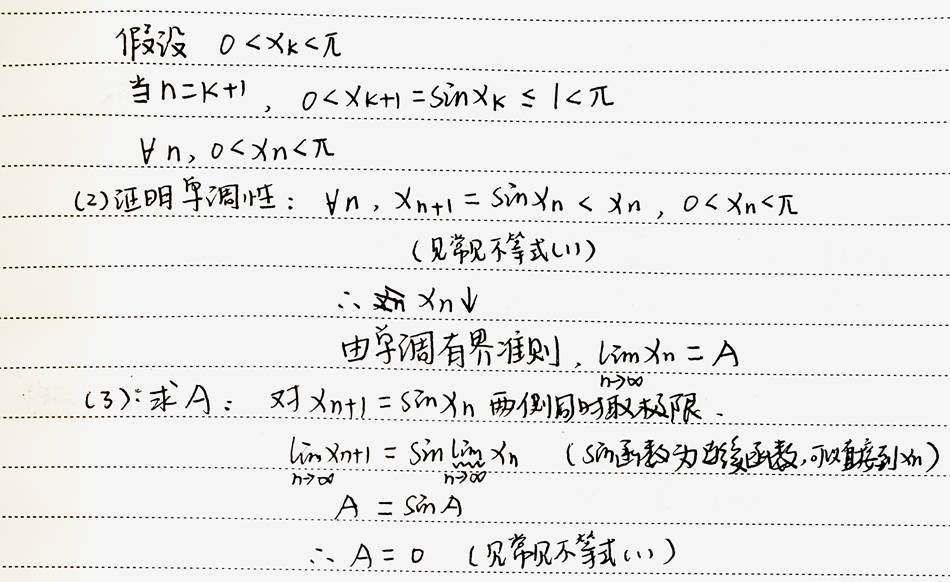 假设 0<xₖ<π
当n=k+1, 0<xₖ₊₁=sinxₖ≤1<π
∀n, 0<xₙ<π
(2)证明单调性: ∀n, xₙ₊₁=sinxₙ<xₙ, 0<xₙ<π
(见常见不等式(1))
∴ xₙ↓
由单调有界准则, lim xₙ=A
n→∞
(3)求A: 对xₙ₊₁=sinxₙ两侧同时取极限.
lim xₙ₊₁=sin lim xₙ (sin函数为连续函数,可以直接到xₙ)
n→∞ n→∞
A=sinA
∴ A=0 (见常见不等式(1))